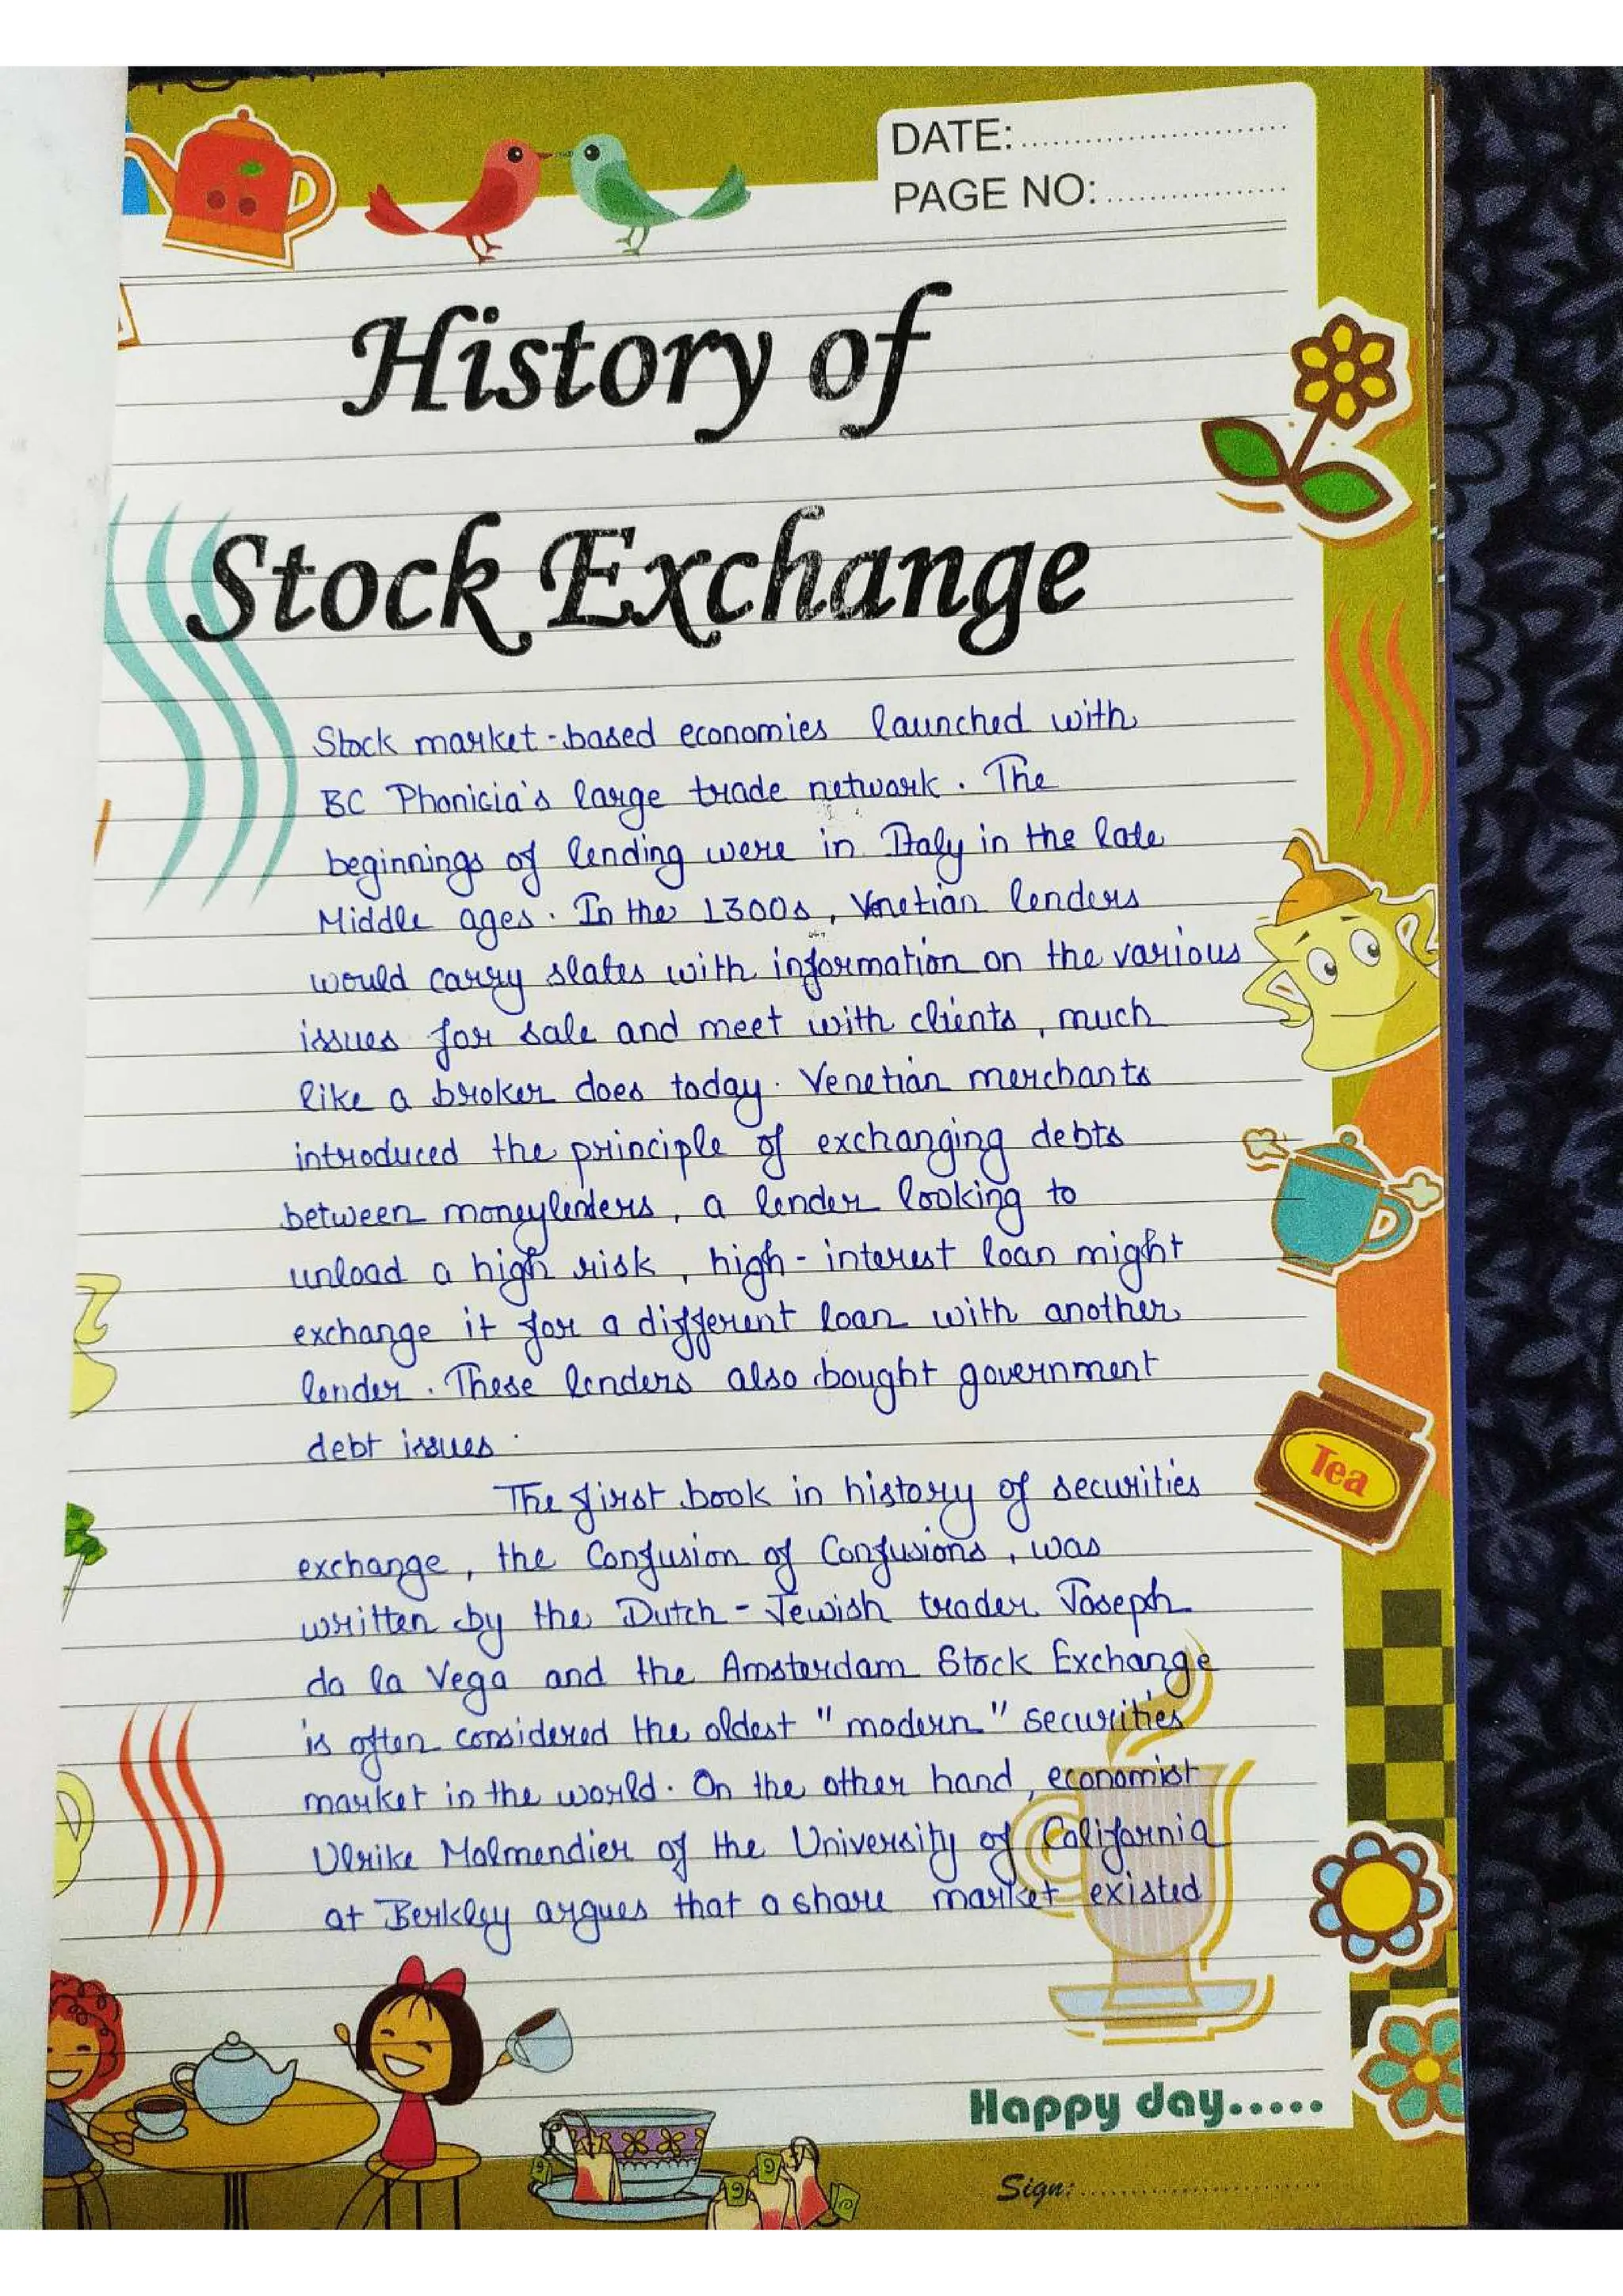 DATE:...........................
PAGE NO:..................
History of
Stock Exchange
Stock market-based economies launched with
BC Phonicia's large trade network. The
beginnings of lending were in Italy in the late
Middle ages. In the 1300s, Venetian lenders
would carry slates with information on the various
issues for sale and meet with clients, much
like a broker does today. Venetian merchants
introduced the principle of exchanging debts
between moneylenders, a lender looking to
unload a high risk, high-interest loan might
exchange it for a different loan with another
lender. These lenders also bought government
debt issues.
The first book in history of securities
exchange, the Confusion of Confusions, was
written by the Dutch-Jewish trader Joseph
da la Vega and the Amsterdam Stock Exchange
is often considered the oldest "modern" securities
market in the world. On the other hand, economist
Ulrike Malmendier of the University of California
at Berkley argues that a share market existed
Tea
Happy day.....
Sign:........................